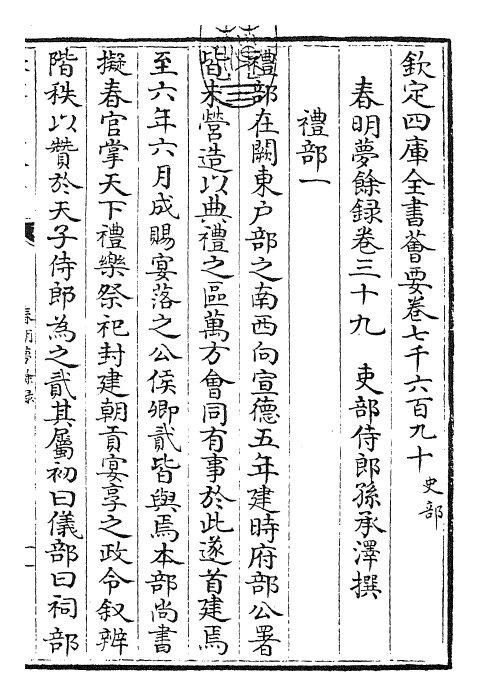 欽定四庫全書薈要卷七千六百九十 史部
春明夢餘録卷三十九 吏部侍郎孫承澤撰
禮部一
禮部在闕東户部之南西向宣德五年建時府部公署
皆未營造以典禮之區萬方會同有事於此遂首建焉
至六年六月成賜宴落之公侯卿貳皆與焉本部尚書
擬春官掌天下禮樂祭祀封建朝貢宴享之政令叙辨
階秩以贊於天子侍郎為之貳其屬初曰儀部曰祠部
春明夢餘録
一